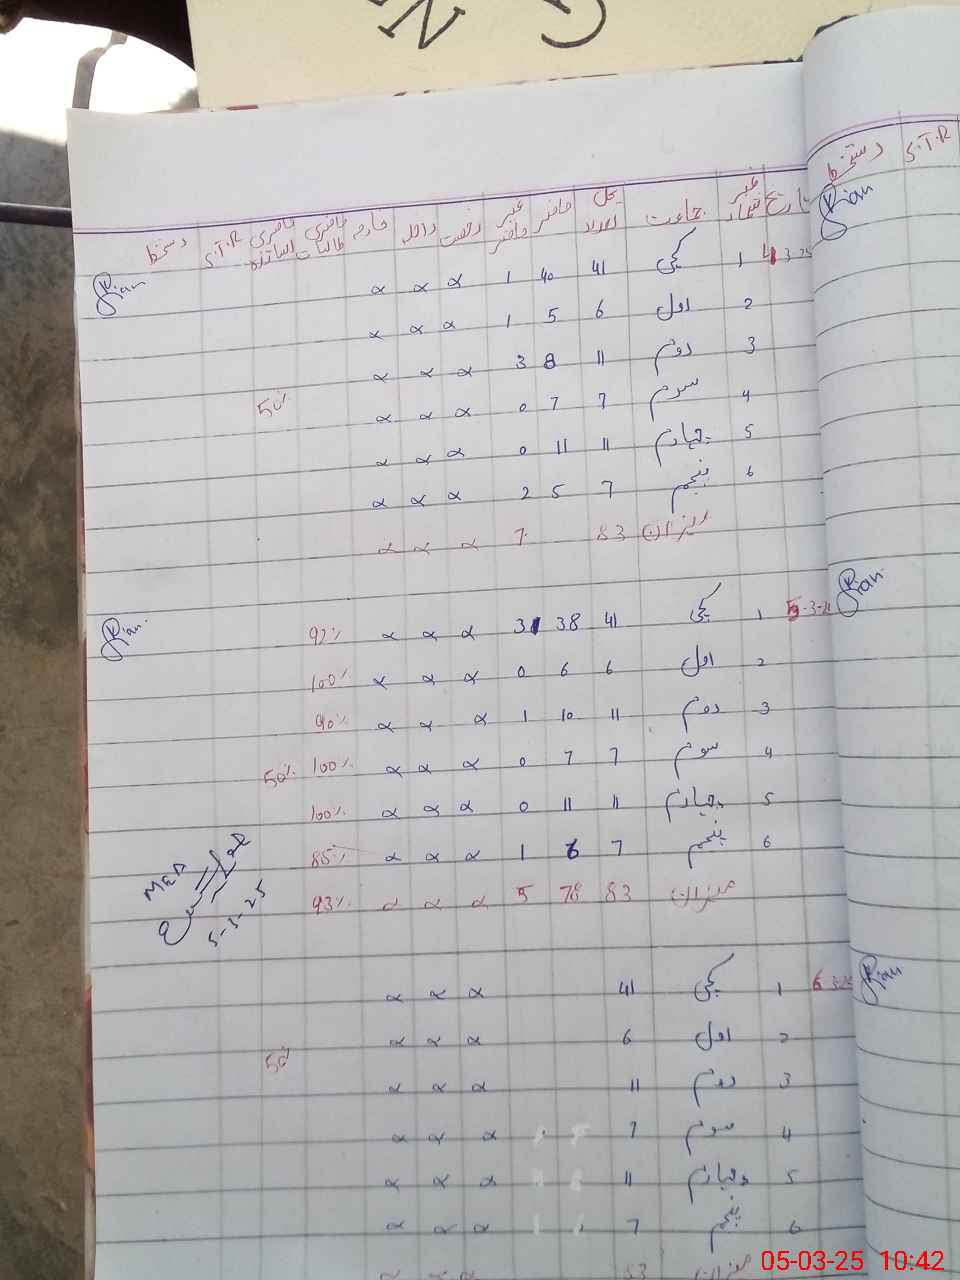 G N
دستخط S.T.R
تاریخ نمبر شمار جماعت کل تعداد حاضر غیر حاضر رخصت داخلہ خارجہ حاضری طالبات حاضری اساتذہ S.T.R دستخط
4 3-25 1 کچی 41 40 1 × × ×
2 اول 6 5 1 × × ×
3 دوم 11 8 3 × × ×
4 سوم 7 7 0 × × × 50%
5 چہارم 11 11 0 × × ×
6 پنجم 7 5 2 × × ×
میزان 83 7 × × ×
5-3-2 1 کچی 41 38 3 × × × 92%
2 اول 6 6 0 × × × 100%
3 دوم 11 10 1 × × × 90%
4 سوم 7 7 0 × × × 100% 50%
5 چہارم 11 11 0 × × × 100%
6 پنجم 7 6 1 × × × 85%
میزان 83 78 5 × × × 93%
MED
5-3-25
6 3-25 1 کچی 41 × × ×
2 اول 6 × × ×
50%
3 دوم 11 × × ×
4 سوم 7 × × ×
5 چہارم 11 × × ×
6 پنجم 7 × × ×
میزان 83 × × ×
05-03-25 10:42